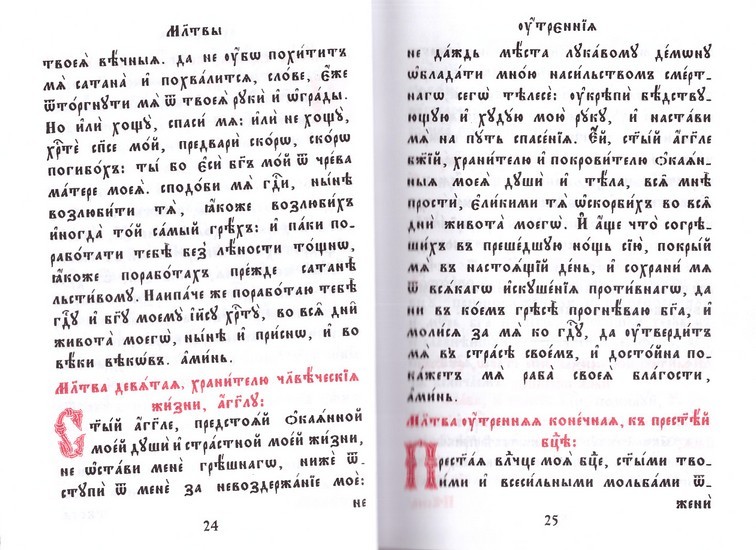 Мл҃твы
твоеѧ̀ вѣ́чныѧ. да не ᲂу҆́бѡ похи́титъ
мѧ̀ сатана̀ и҆ похва́литсѧ, сло́ве, є҆́же
ѿто́ргнути мѧ̀ ѿ твоеѧ̀ рꙋкѝ и҆ ѡ҆гра́ды.
Но и҆лѝ хощꙋ̀, спаси́ мѧ: и҆лѝ не хощꙋ̀,
хрⷭ҇тѐ сп҃се мо́й, предварѝ ско́рѡ, ско́рѡ
погибо́хъ: ты́ бо є҆сѝ бг҃ъ мо́й ѿ чре́ва
ма́тере моеѧ̀. сподо́би мѧ̀ гдⷭ҇и, ны́нѣ
возлюби́ти тѧ̀, ꙗ҆́коже возлюби́хъ
и҆ногда̀ то́й са́мый грѣ́хъ: и҆ па́ки по-
рабо́тати тебѣ̀ без̾ лѣ́ности то́щнѡ,
ꙗ҆́коже порабо́тахъ пре́жде сатанѣ̀
льсти́вомꙋ. Наипа́че же порабо́таю тебѣ̀
гдⷭ҇ꙋ и҆ бг҃ꙋ моемꙋ̀ і҆и҃сꙋ хрⷭ҇тꙋ̀, во всѧ̑ дни̑
живота̀ моегѡ̀, ны́нѣ и҆ при́снѡ, и҆ во
вѣ́ки вѣкѡ́въ. а҆ми́нь.
Мл҃тва девѧ́таѧ, храни́телю чл҃вѣ́ческїѧ
жи́зни, а҆́гг҃лꙋ:
Ст҃ы́й а҆́гг҃ле, предстоѧ́й ѻ҆каѧ́нной
мое́й дꙋшѝ и҆ стра́стной мое́й жи́зни,
не ѡ҆ста́ви менѐ грѣ́шнагѡ, нижѐ ѿ-
стꙋпѝ ѿ менѐ за невоздержа́нїе моѐ:
не
24
ᲂу҆́трєннїѧ
не да́ждь мѣ́ста лꙋка́вомꙋ де́мѡнꙋ
ѡ҆блада́ти мно́ю наси́льствомъ сме́рт-
нагѡ сегѡ̀ тѣлесѐ: ᲂу҆крѣпѝ бѣ́дствꙋ-
ющꙋю и҆ хꙋдꙋ́ю мою̀ рꙋ́кꙋ, и҆ наста́ви
мѧ̀ на пꙋ́ть спасе́нїѧ. Є҆́й, ст҃ы́й а҆́гг҃ле
бж҃їй, храни́телю и҆ покрови́телю ѻ҆каѧ́н-
ныѧ моеѧ̀ дꙋшѝ и҆ тѣ́ла, всѧ̑ мнѣ̀
простѝ, є҆ли́кими тѧ̀ ѡ҆скорби́хъ во всѧ̑
дни̑ живота̀ моегѡ̀. И҆ а҆́ще что̀ согрѣ-
ши́хъ въ преше́дшꙋю но́щь сїю̀, покры́й
мѧ̀ въ настоѧ́щїй де́нь, и҆ сохрани́ мѧ
ѿ всѧ́кагѡ и҆скꙋше́нїѧ проти́внагѡ, да
ни въ ко́емъ грѣсѣ̀ прогнѣ́ваю бг҃а, и҆
моли́сѧ за мѧ̀ ко гдⷭ҇ꙋ, да ᲂу҆тверди́тъ
мѧ̀ въ стра́сѣ свое́мъ, и҆ досто́йна по-
ка́жетъ мѧ̀ раба̀ своеѧ̀ бла́гости,
а҆ми́нь.
Мл҃тва ᲂу҆́треннѧѧ коне́чнаѧ, къ прест҃ѣ́й
бцⷣѣ:
Прест҃а́ѧ влⷣчце моѧ̀ бцⷣе, ст҃ы́ми твои́-
ми и҆ всеси́льными мольба́ми ѿ-
женѝ
25